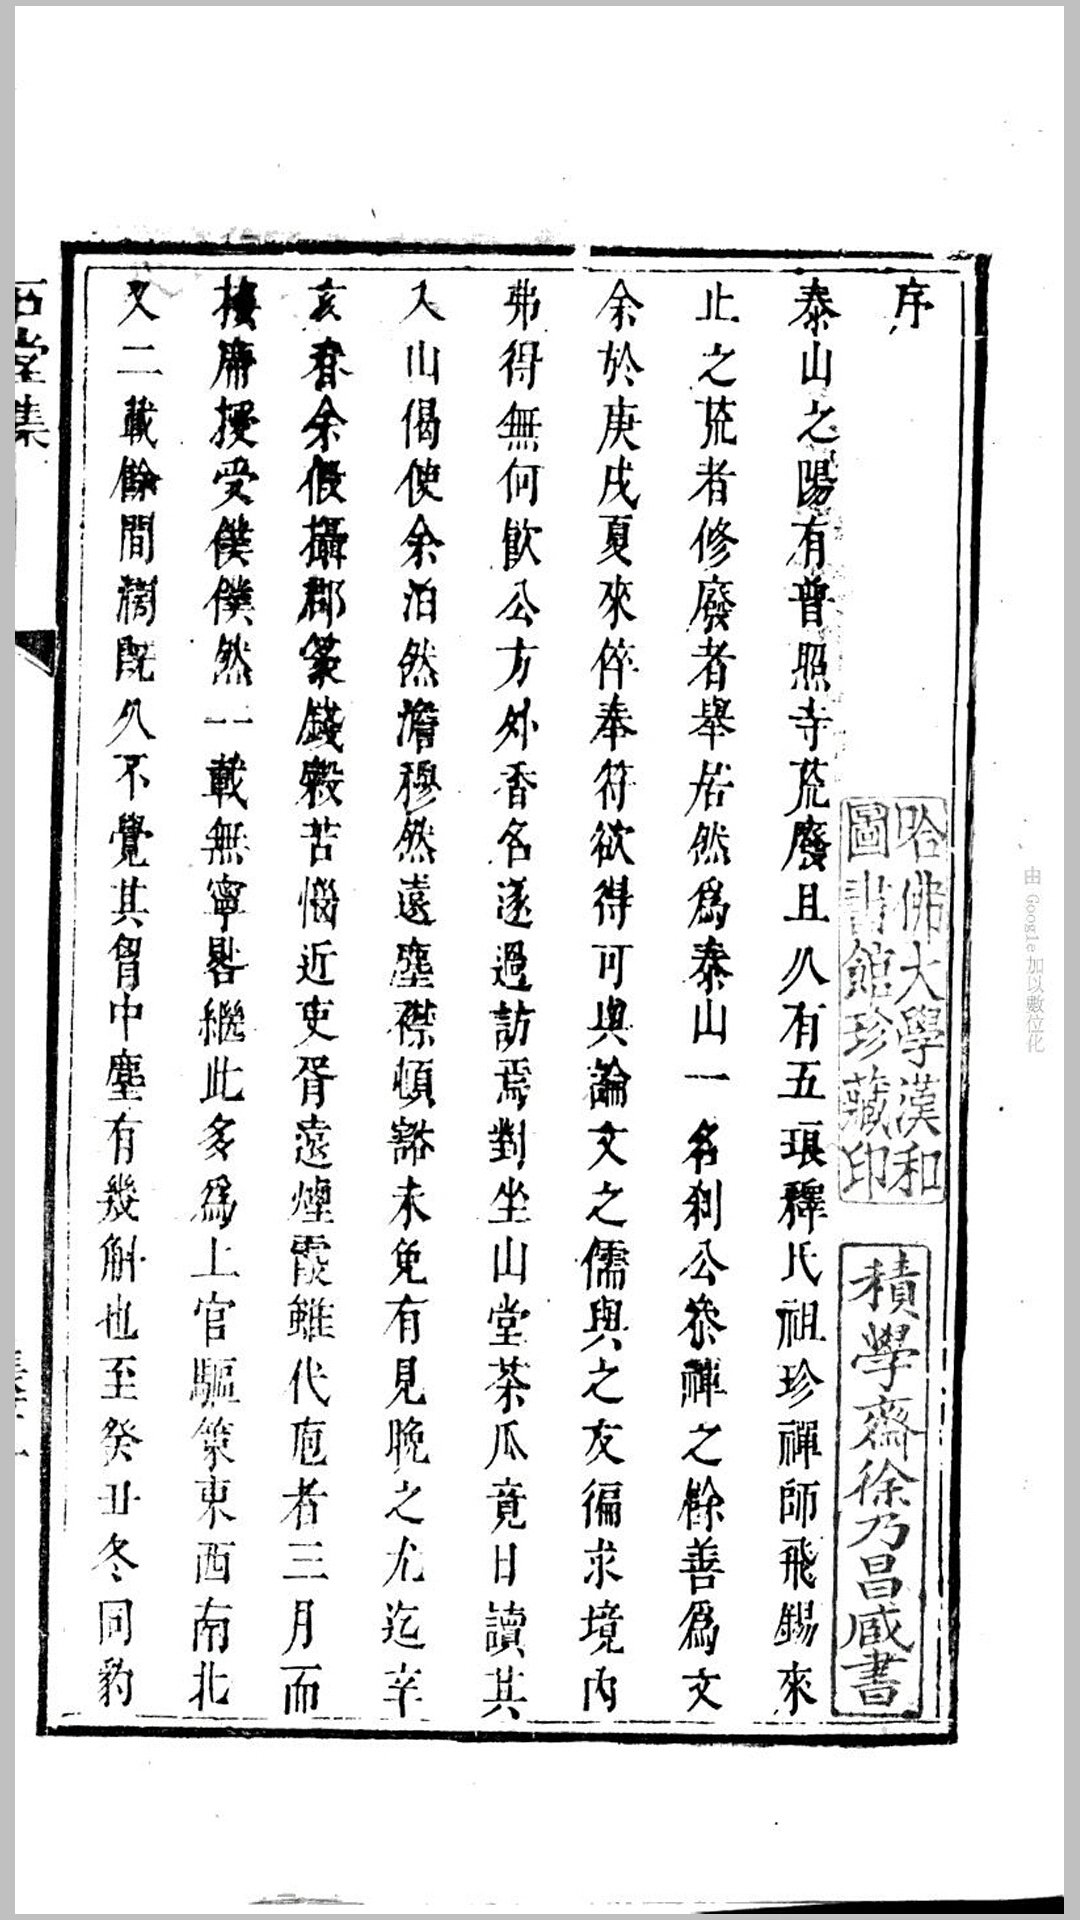 序
泰山之陽有普照寺荒廢且久有五琅釋氏祖珍禪師飛錫來
止之荒者修廢者舉居然爲泰山一名刹公叅禪之餘善爲文
余於庚戌夏來倅奉符欲得可與論文之儒與之友徧求境内
弗得無何飮公方外香名遂過訪焉對坐山堂茶瓜竟日讀其
入山偈使余泊然澹穆然遠塵襟頓豁未免有見晚之尤迄辛
亥春余假攝郡篆錢穀苦惱近吏胥遠煙霞雖代庖者三月而
接席授受僕僕然一載無寧晷繼此多爲上官驅策東西南北
又二載餘間濶既久不覺其胷中塵有幾斛也至癸丑冬同豹
石堂集
哈佛大學漢和
圖書館珍藏印
積學齋徐乃昌藏書
由 Google 加以數位化